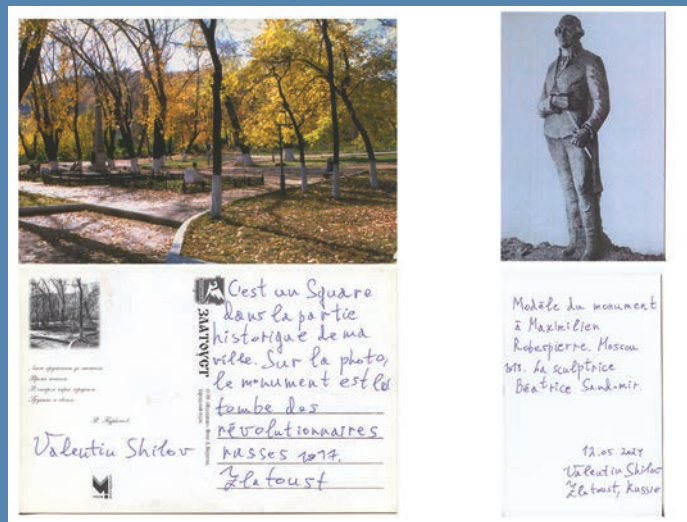 C'est un Square
dans la partie
historique de ma
ville. Sur la photo,
le monument est la
tombe des
révolutionnaires
russes 1917.
Zlatoust
Valentin Shilov
ЗЛАТОУСТ
Modèle du monument
à Maximilien
Robespierre. Moscou
1918. La sculptrice
Béatrice Sandomir.
12.05.2024
Valentin Shilov
Zlatoust, Russie